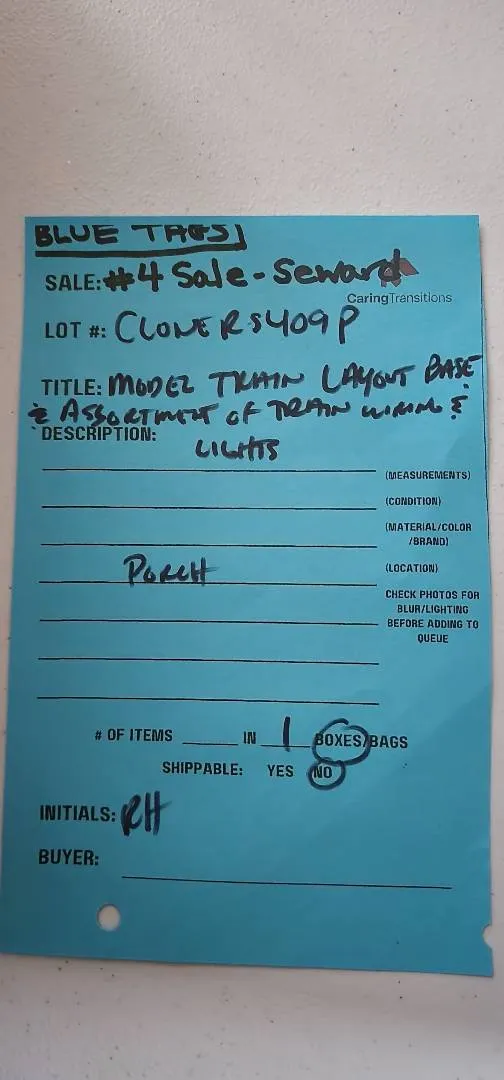 BLUE TAGS
SALE: #4 Sale - Seward
CaringTransitions
LOT #: CLONERS409P
TITLE: MODEL TRAIN LAYOUT BASE
& ASSORTMENT OF TRAIN WIRING &
DESCRIPTION: LIGHTS
(MEASUREMENTS)
(CONDITION)
(MATERIAL/COLOR
/BRAND)
PORCH (LOCATION)
CHECK PHOTOS FOR
BLUR/LIGHTING
BEFORE ADDING TO
QUEUE
# OF ITEMS ____ IN 1 BOXES/BAGS
SHIPPABLE: YES NO
INITIALS: RH
BUYER: